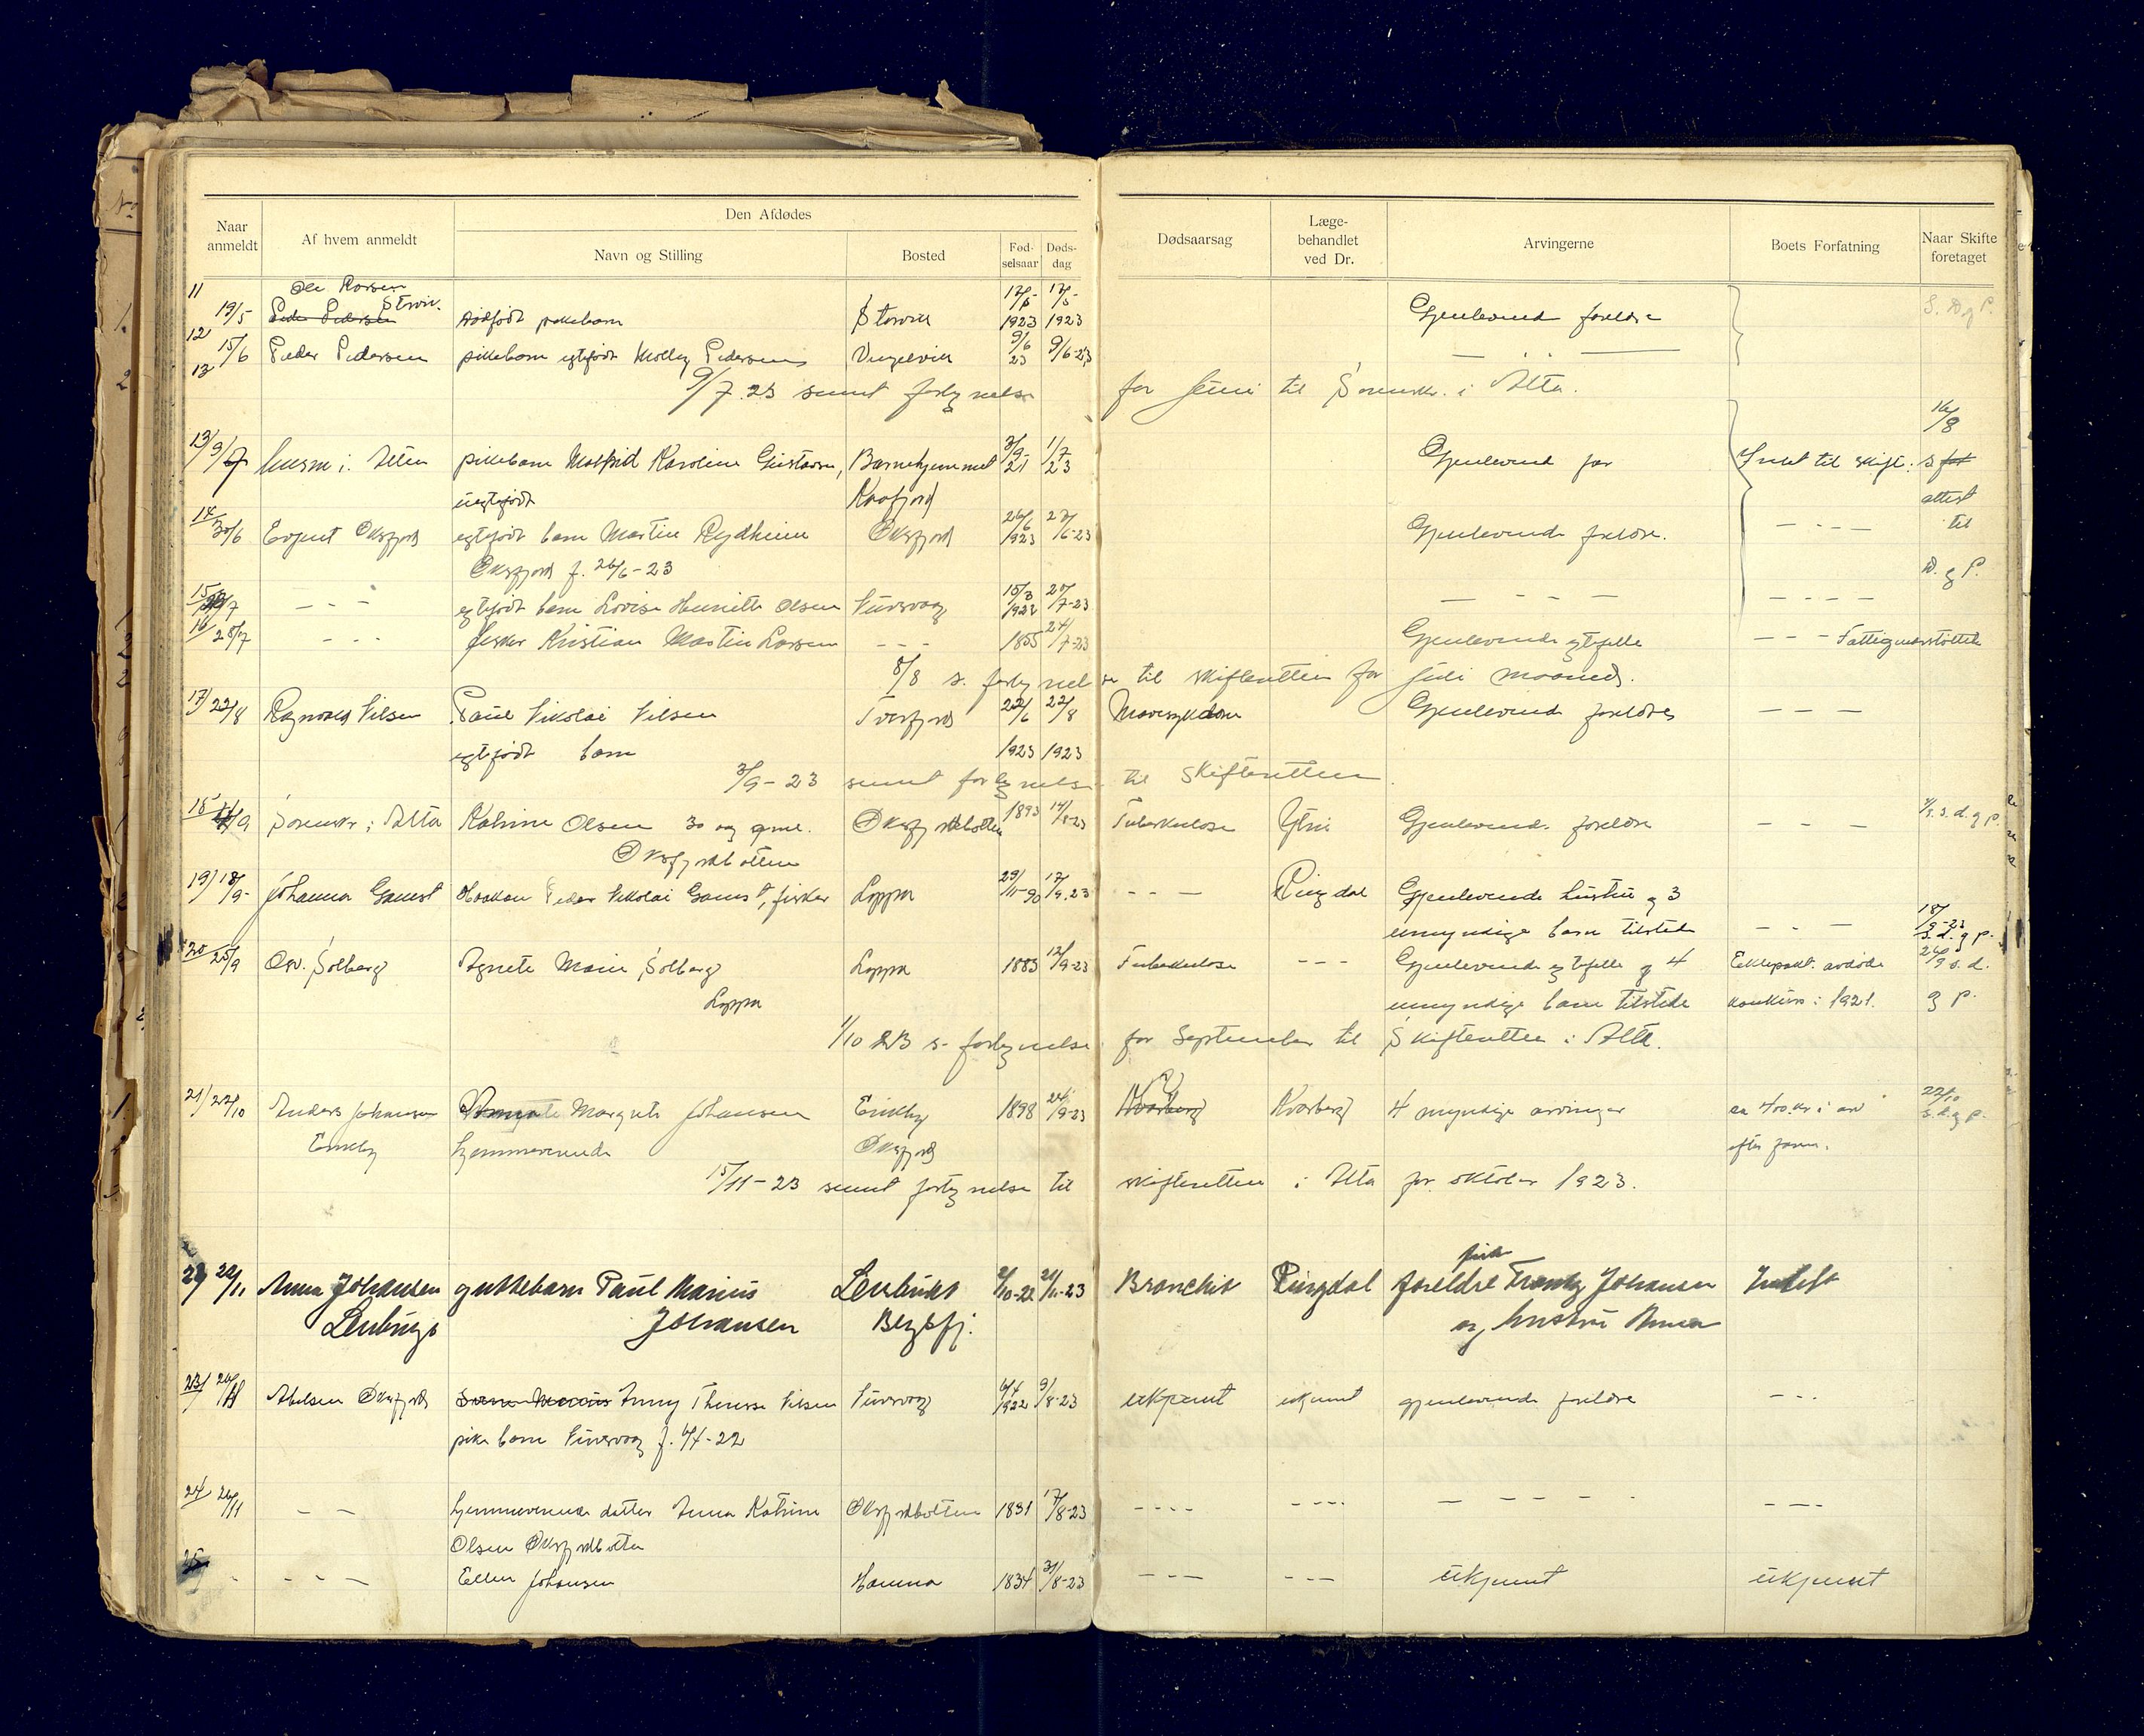 Naar anmeldt
Af hvem anmeldt
Den Afdødes
Navn og Stilling
Bosted
Fød-selsaar
Døds-dag
Dødsaarsag
Læge-behandlet ved Dr.
Arvingerne
Boets Forfatning
Naar Skifte foretaget
11 Ole Larsen
19/5 Peder Pedersen Storvik. dødfødt pikebarn Storvik 17/5 1923 17/5 1923 Gjenlevend foreldre S. D. g P.
12 15/6 Peder Pedersen pikebarn egtefødt Molly Pedersen 9/6 23 9/6-23 — " —
13 9/7.23 sennt fortegnelse for juni til Sorenskr. i Alta.
16/8
13/ 3/7 lensm i Alten pikebarn Karoline Gustavsen, Barnehjemmet 3/9-21 1/7 23 Gjenlevend far Intet til skifte. s
uegtefødt Kaafjord attest
14 30/6 Oksfjord egtefødt barn Martin Rydheim Oksfjord 26/6 1923 27/6-23 Gjenlevende foreldre. — " — til
Oksfjord f. 26/6-23 D. g P.
15 /7 — " — egtefødt barn Lovise Henriette Olsen 15/3 1922 20/7-23 — " — — " —
16 28/7 — " — fisker Kristian Martin Larsen — " — 1855 24/7-23 Gjenlevende egtefelle — " — Fattigunderstøttet
8/8 s. fortegnelse til skifteretten for juli maaned.
17/ 22/8 Ragnvald Nilsen Paul Nikolai Nilsen Tverfjord 22/6 22/8 Mavesykdom Gjenlevend foreldre — " —
egtefødt barn 1923 1923
3/9-23 sennt fortegnelse til skifteretten
18 /9 Sorenskr i Alta Katrine Olsen 30 aar gml. Oksfjordbotten 1893 17/8-23 Tuberkulose Gjenlevende foreldre — " — s. d. g P.
Oksfjordbotten
19/ 18/9- Johanna Gamst Haakon Peder Nikolai Gamst, fisker Loppa 29/11-90 17/9.23 — " — Ringdal Gjenlevende hustru og 3
umyndige barn tilstede — " — 18/9-23 s. d. g P.
20 25/9 Osv. Solberg Agnete Marie Solberg Loppa 1883 12/9-23 Tuberkulose — " — Gjenlevende egtefelle og 4 Ektepakt. avdøde 26/9 s. d.
Loppa umyndige barn tilstede konkurs i 1921. g P.
1/10 23 s. fortegnelse for September til Skifteretten i Alta.
21/ 22/10 Anders Johansen Margrete Johansen Eineby 1898 24/9-23 Kvarberg Kvarberg 4 myndige arvinger ca 400.kr i arv 22/10 s. d. g P.
Eineby hjemmeværende Oksfjord efter faren.
15/11-23 sennt fortegnelse til skifteretten i Alta for oktober 1923.
fisk
22/ 22/11 Anna Johansen guttebarn Paul Marius 2/10-22 21/11-23 Bronchit Ringdal foreldre Frantz Johansen Intet
Johansen Bergsfj. og hustru Anna
23/ 26/11 Abelsen Oksfjord Anny Therese Nilsen 6/4 1922 9/8-23 ukjennt ukjennt gjenlevende foreldre — " —
pikebarn f. 6/4-22
24/ 26/11 — " — hjemmeværende datter Anna Katrine Oksfjordbotten 1891 17/8-23 — " — — " — — " — — " —
Olsen Oksfjordbotten
25 — " — Ellen Johansen Hamna 1834 31/8-23 — " — — " — ukjennt ukjennt